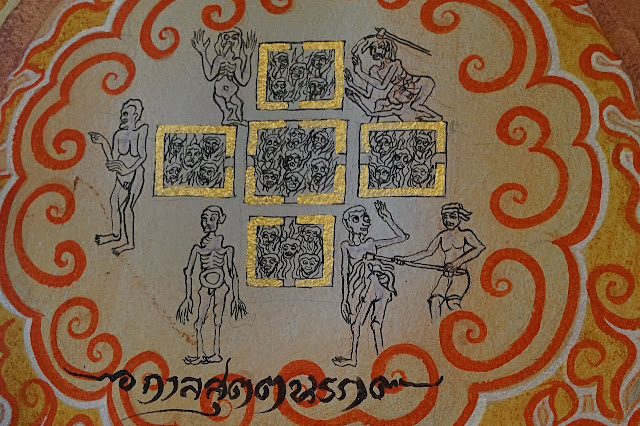 กาลสุตตนรก